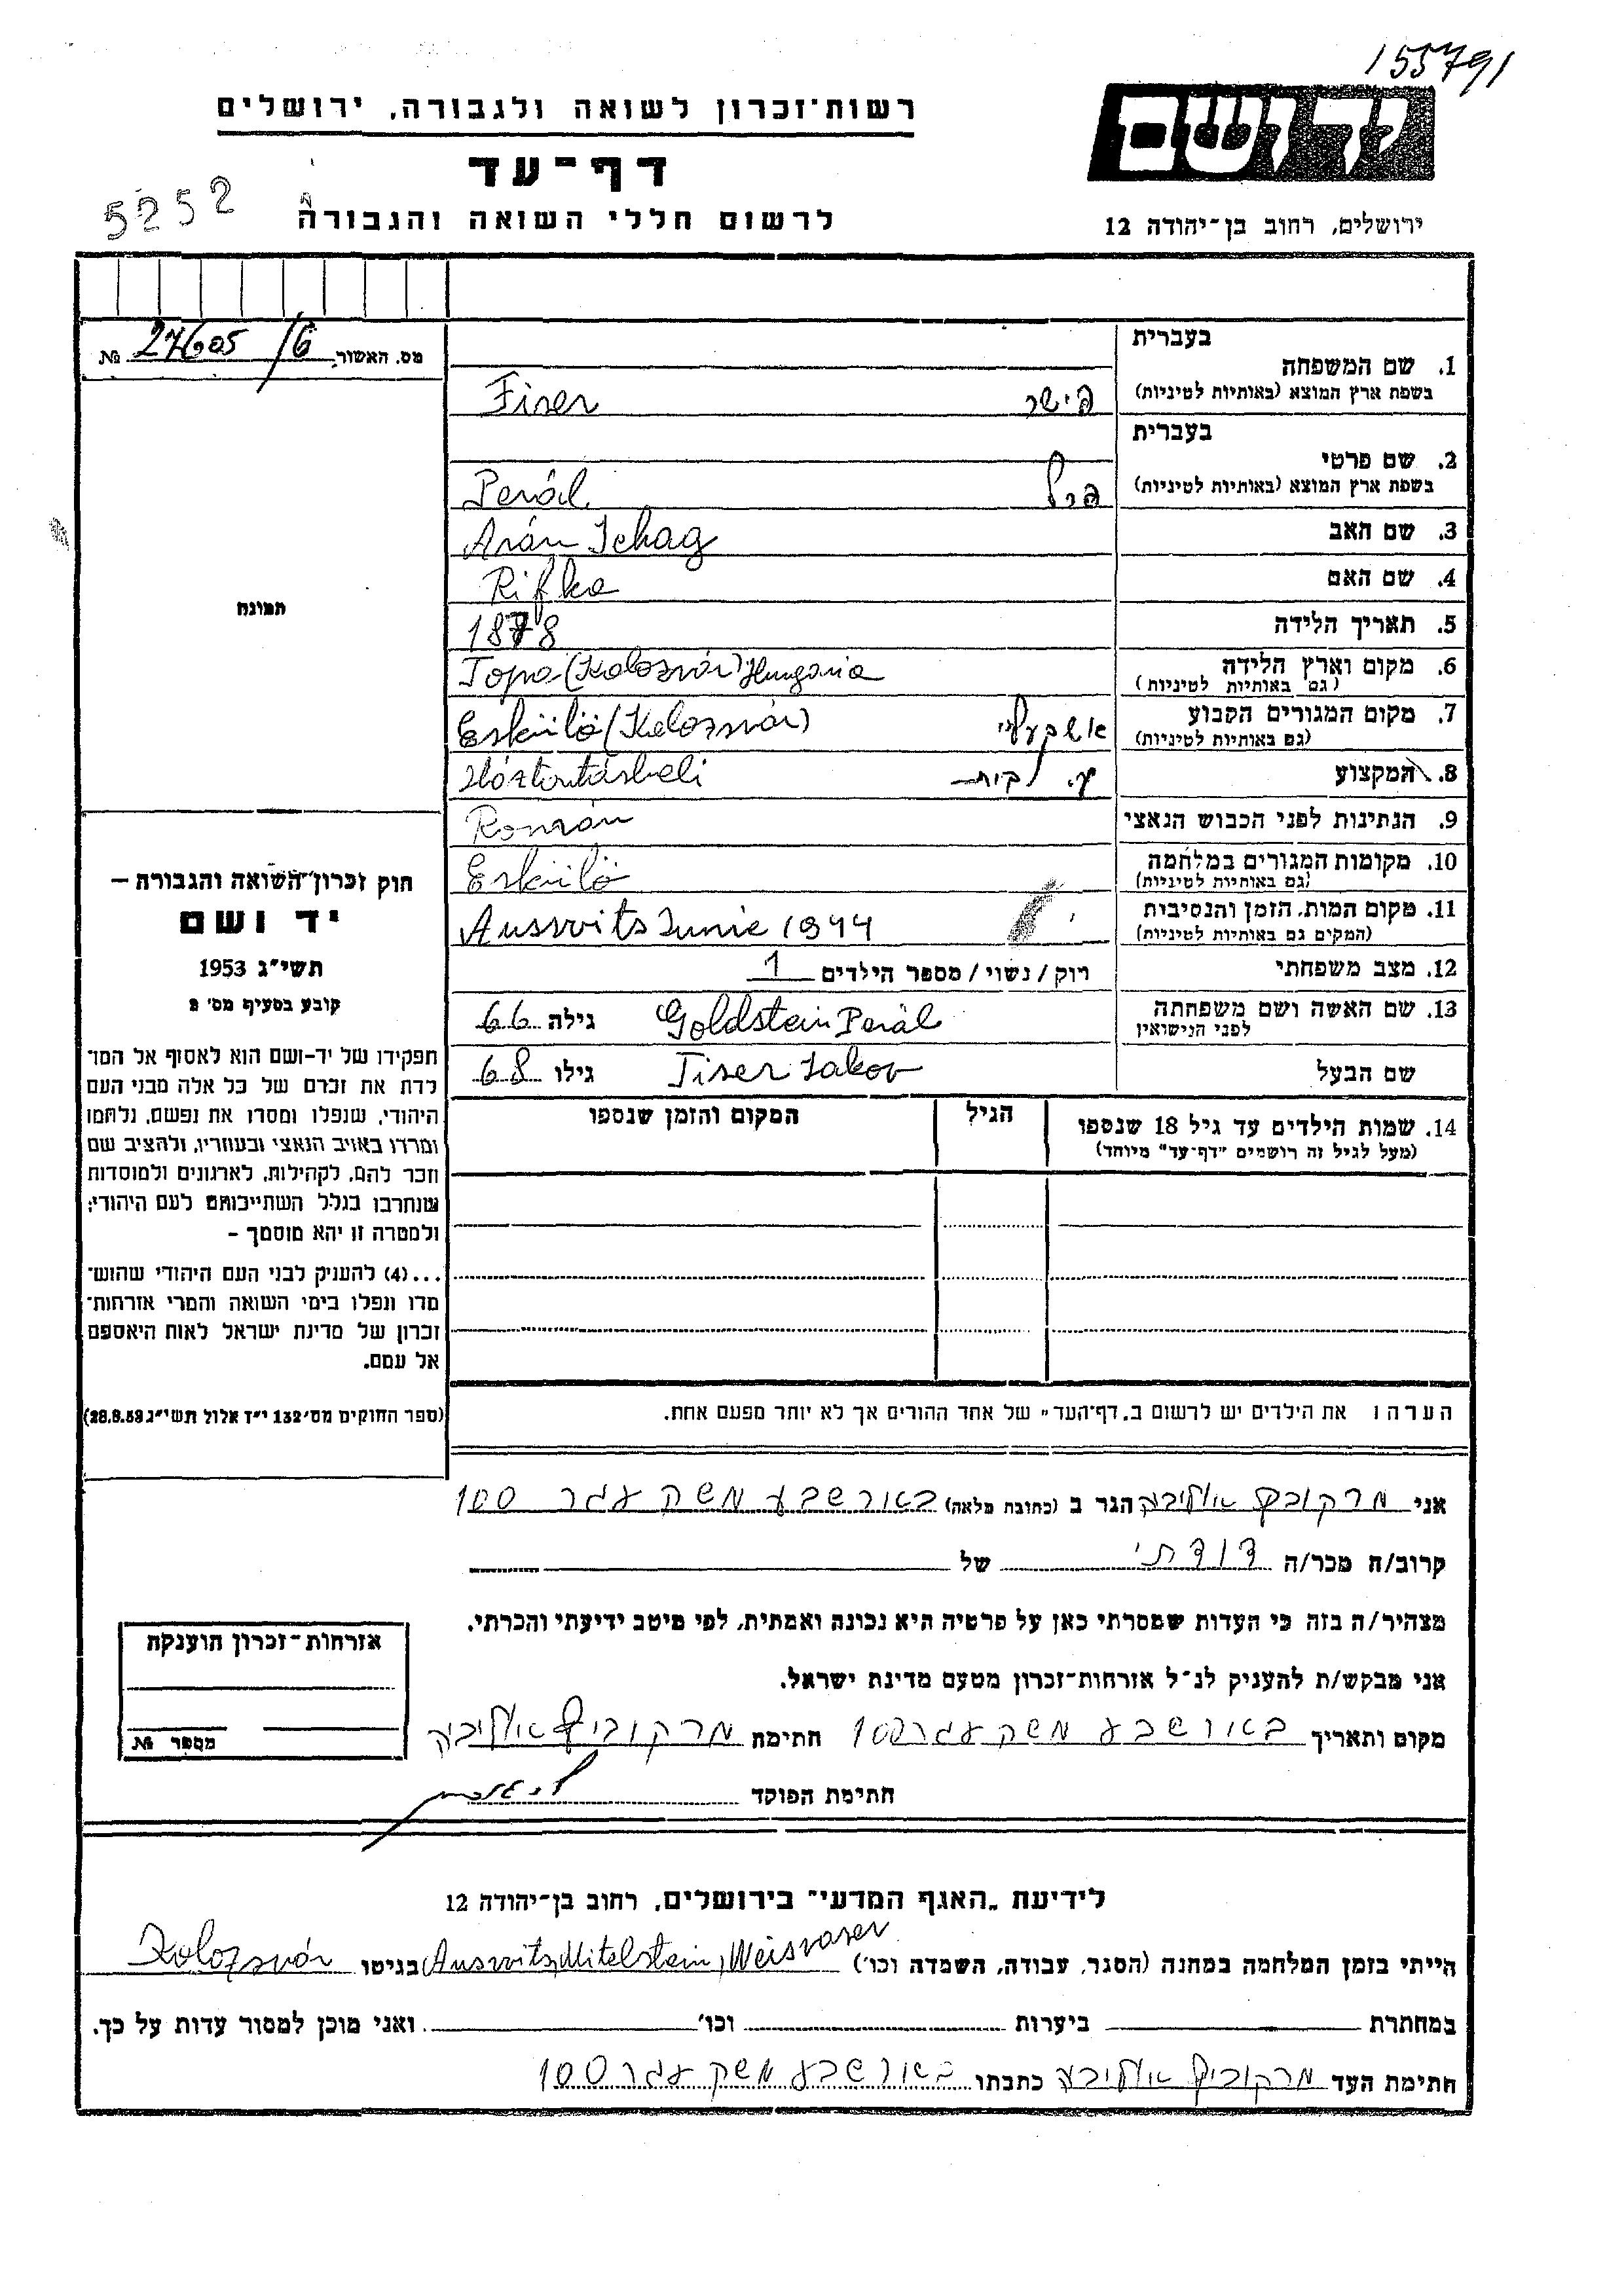 155791
רשות־זכרון לשואה ולגבורה, ירושלים
יד ושם
דף־עד
5252
לרשום חללי השואה והגבורה
ירושלים, רחוב בן־יהודה 12
מס. האשור № 27605/6
תמונה
בעברית
1. שם המשפחה
בשפת ארץ המוצא (באותיות לטיניות)
פישר Fiser
בעברית
2. שם פרטי
בשפת ארץ המוצא (באותיות לטיניות)
פרל Perál
3. שם האב Arán Ichag
4. שם האם Rifka
5. תאריך הלידה 1878
6. מקום וארץ הלידה Topa (Kolozsvár) Hungaria
(גם באותיות לטיניות)
7. מקום המגורים הקבוע Esküllö (Kolozsvár)
(גם באותיות לטיניות)
8. המקצוע Háztartásbeli
9. הנתינות לפני הכבוש הנאצי Román
10. מקומות המגורים במלחמה Esküllö
(גם באותיות לטיניות)
11. מקום המות, הזמן והנסיבות Ausvits Junie 1944
(המקום גם באותיות לטיניות)
12. מצב משפחתי רווק/נשוי/מספר הילדים 1
13. שם האשה ושם משפחתה Goldstein Perál גילה 66
לפני הנישואין
שם הבעל Fiser Jakov גילו 68
14. שמות הילדים עד גיל 18 שנספו הגיל המקום והזמן שנספו
(מעל לגיל זה רושמים "דף־עד" מיוחד)
הערה: את הילדים יש לרשום ב„דף־העד" של אחד ההורים אך לא יותר מפעם אחת.
חוק זכרון השואה והגבורה –
יד ושם
תשי"ג 1953
קובע בסעיף מס' 2
תפקידו של יד-ושם הוא לאסוף אל המו־
לדת את זכרם של כל אלה מבני העם
היהודי, שנפלו ומסרו את נפשם, נלחמו
ומרדו באויב הנאצי ובעוזריו, ולהציב שם
וזכר להם, לקהילות, לארגונים ולמוסדות
שנחרבו בגלל השתייכותם לעם היהודי;
ולמטרה זו יהא מוסמך –
...(4) להעניק לבני העם היהודי שהוש־
מדו ונפלו בימי השואה והמרי אזרחות־
זכרון של מדינת ישראל לאות היאספם
אל עמם.
(ספר החוקים מס' 132 י"ז אלול תשי"ג 28.8.53)
אני מרקוביץ אוליבה הגר ב (כתובת מלאה) באר שבע משק עגר 100
קרוב/ה מכר/ה דודתי של
מצהיר/ה בזה כי העדות שמסרתי כאן על פרטיה היא נכונה ואמתית, לפי מיטב ידיעתי והכרתי.
אני מבקש/ת להעניק לנ"ל אזרחות־זכרון מטעם מדינת ישראל.
מקום ותאריך באר שבע משק עגר 100 חתימה מרקוביץ אוליבה
חתימת הפוקד
אזרחות־זכרון הוענקה
מספר №
לידיעת „האגף המדעי" בירושלים, רחוב בן־יהודה 12
הייתי בזמן המלחמה במחנה (הסגר, עבודה, השמדה וכו') Ausvits, Mitelstein, Weisvaser בגיטו Kolozsvár
במחתרת ביערות וכו' ואני מוכן למסור עדות על כך.
חתימת העד מרקוביץ אוליבה כתבתו באר שבע משק עגר 100